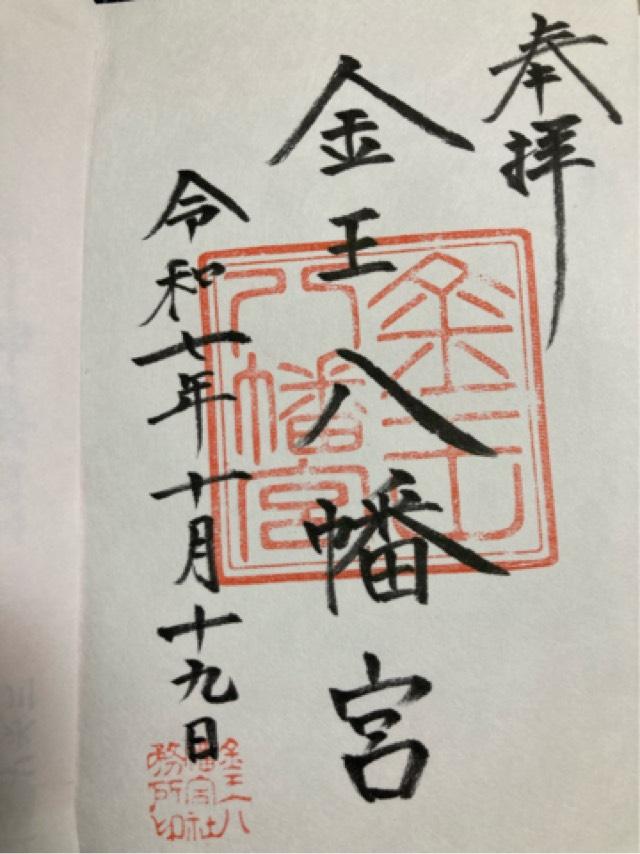 奉拝
金王八幡宮
金王八幡宮
令和七年十月十九日
金王八
幡宮社
務所印